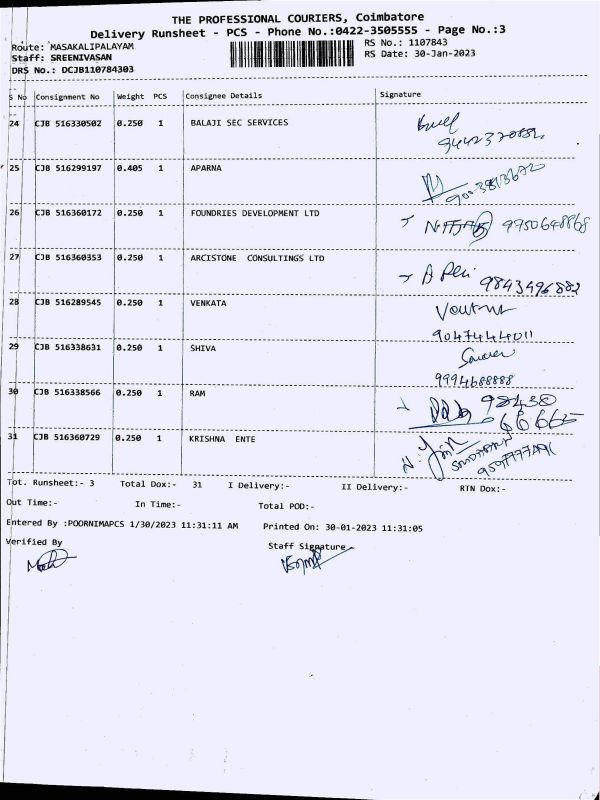 THE PROFESSIONAL COURIERS, Coimbatore
Delivery Runsheet - PCS - Phone No.:0422-3505555 - Page No.:3
Route: MASAKALIPALAYAM RS No.: 1107843
Staff: SREENIVASAN RS Date: 30-Jan-2023
DRS No.: DCJB110784303
S No Consignment No Weight PCS Consignee Details Signature
24 CJB 516330502 0.250 1 BALAJI SEC SERVICES
25 CJB 516299197 0.405 1 APARNA
26 CJB 516360172 0.250 1 FOUNDRIES DEVELOPMENT LTD 9750648868
27 CJB 516360353 0.250 1 ARCISTONE CONSULTINGS LTD 9843496882
28 CJB 516289545 0.250 1 VENKATA
9047444011
29 CJB 516338631 0.250 1 SHIVA
9994688888
30 CJB 516338566 0.250 1 RAM 98430
66665
31 CJB 516360729 0.250 1 KRISHNA ENTE
Tot. Runsheet:- 3 Total Dox:- 31 I Delivery:- II Delivery:- RTN Dox:-
Out Time:- In Time:- Total POD:-
Entered By :POORNIMAPCS 1/30/2023 11:31:11 AM Printed On: 30-01-2023 11:31:05
Verified By Staff Signature